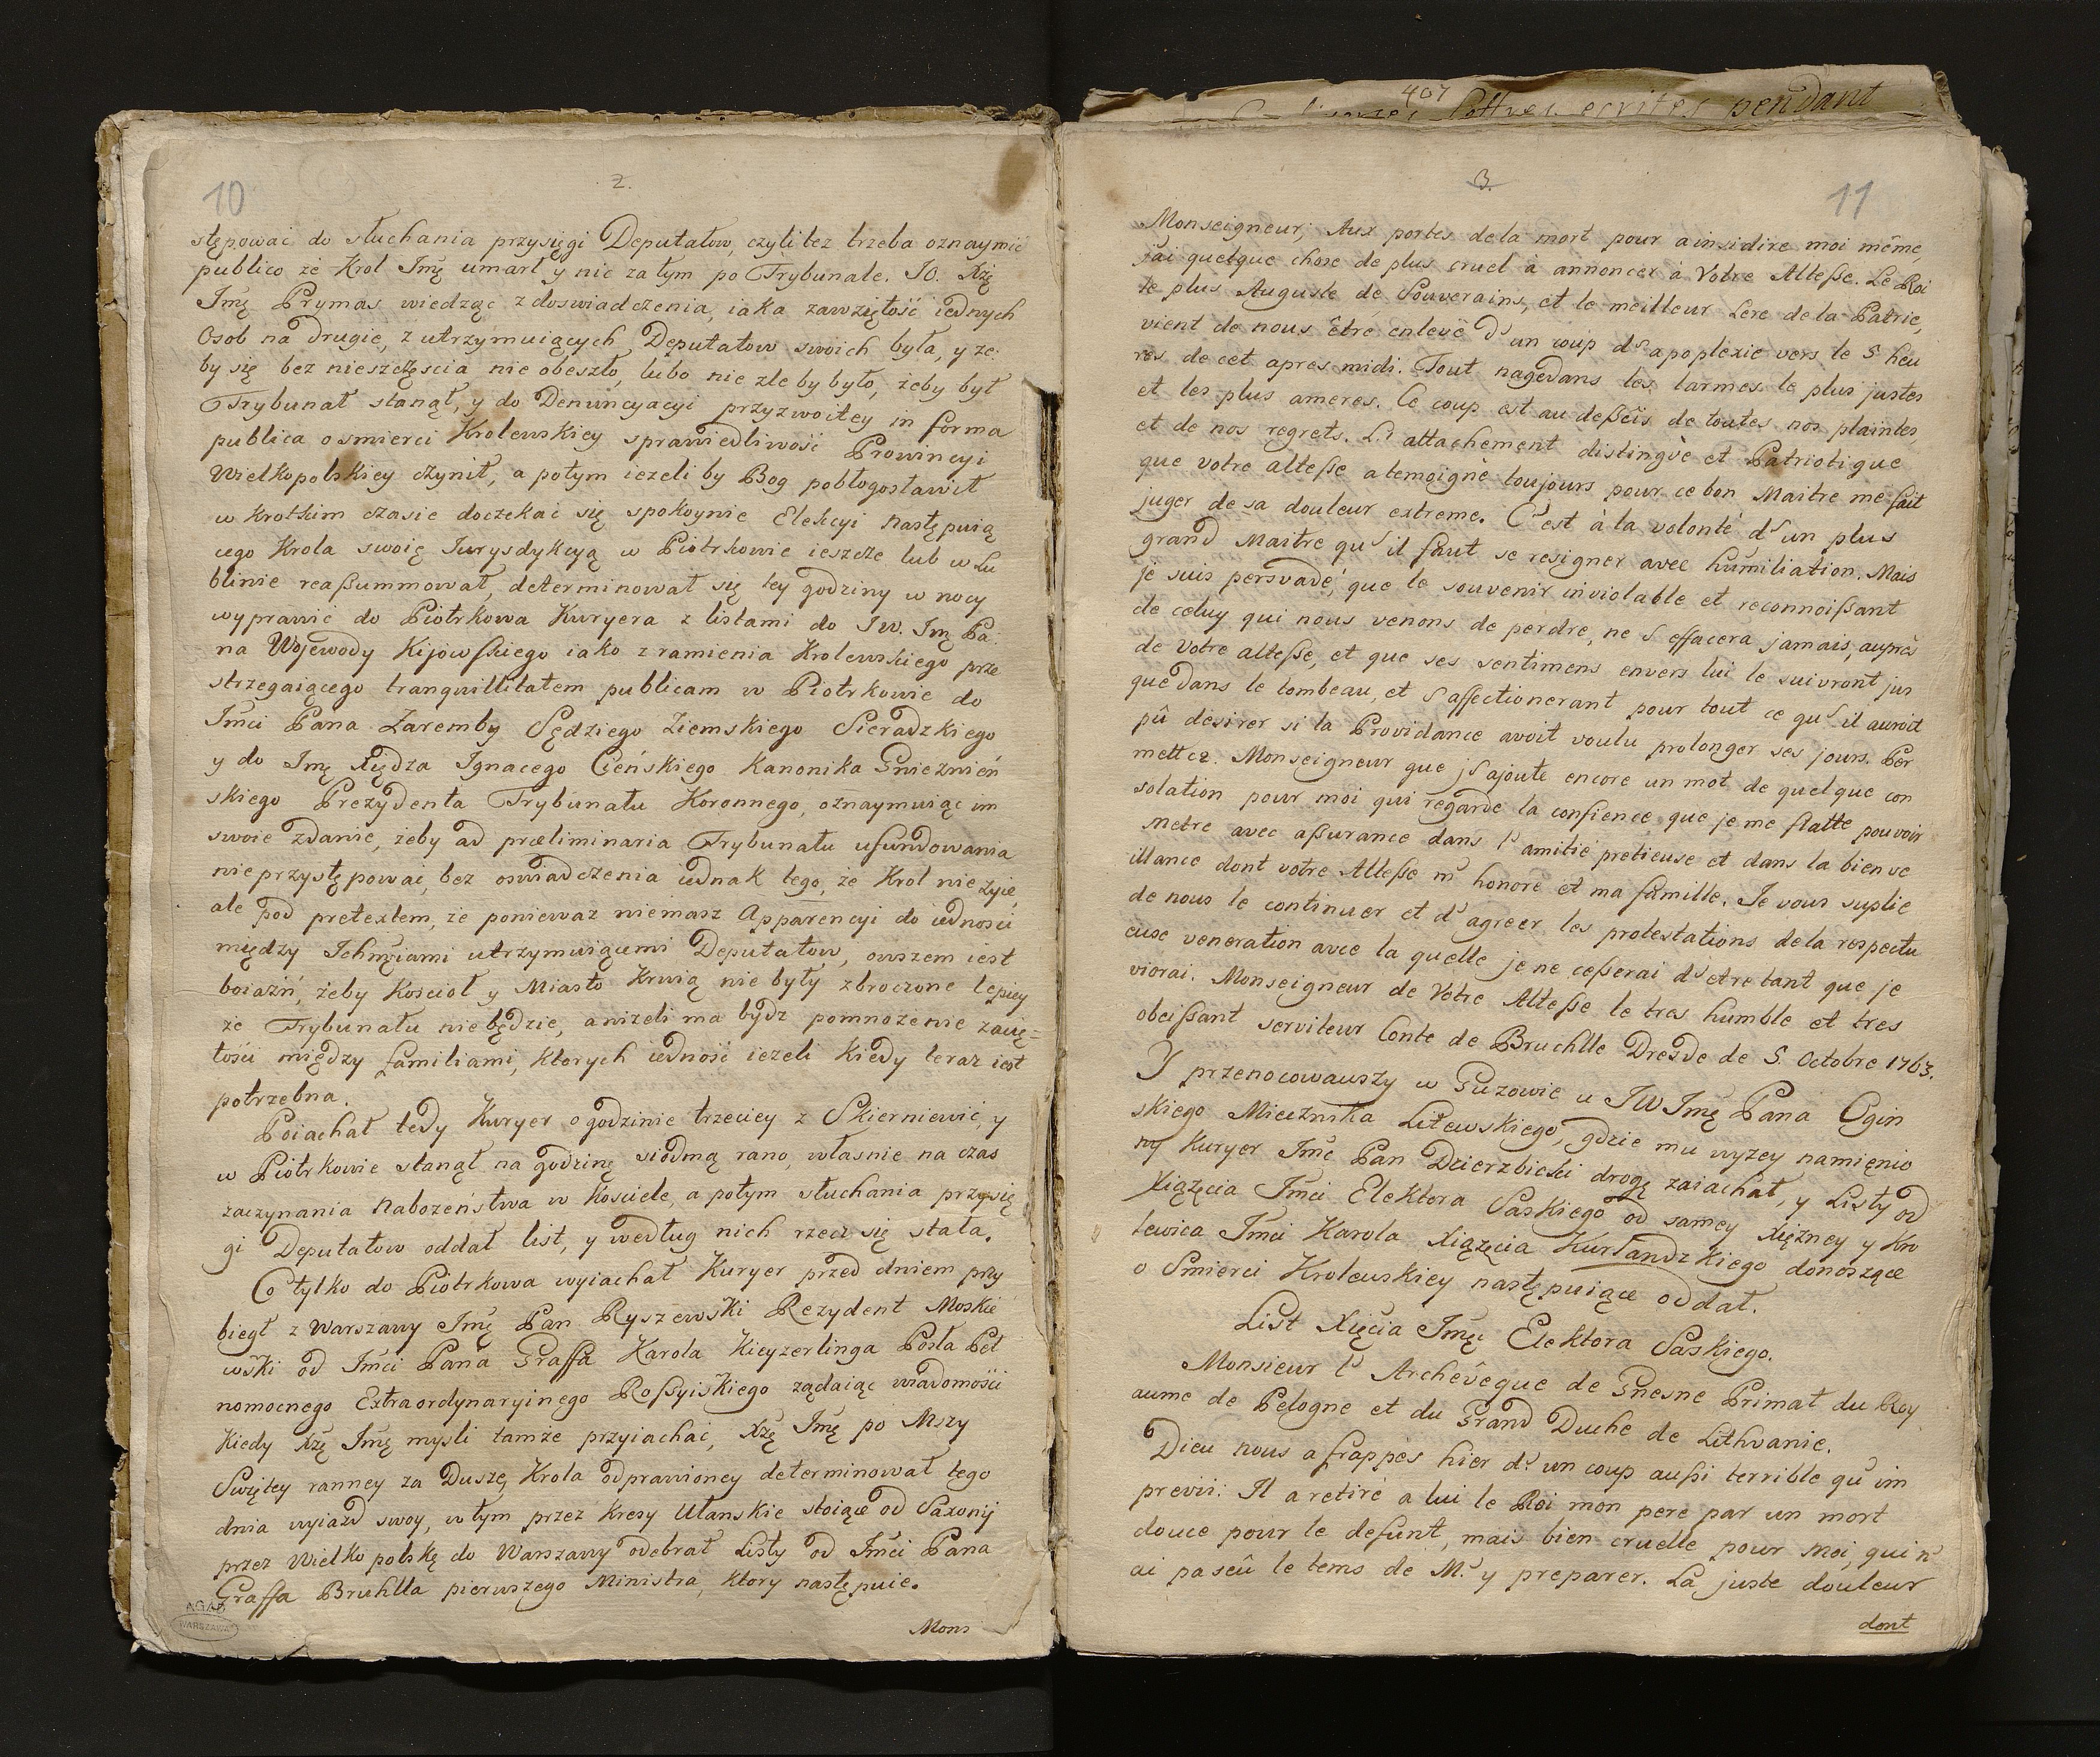 10
2.
stępować do słuchania przysięgi Deputatow, czyli też trzeba oznaymić
publico że Krol Jmę umarł y nic za tym po Trybunale. JO. Xżę
Jmę Prymas wiedząc z doswiadczenia, iaka zawziętość iednych
Osob na drugie, z utrzymuiących Deputatow swoich była, y że
by się bez nieszczęscia nie obeszło, lubo nie zle by było, żeby był
Trybunał stanął, y do Denuncyacyi przyzwoitey in forma
publica o smierci Krolewskiey sprawiedliwość Prowincyi
Wielkopolskiey czynił, a potym ieżeli by Bog pobłogosławił
w krotkim czasie doczekać się spokoynie Elekcyi następuią
cego Krola swoię Jurysdykcyą w Piotrkowie ieszcze lub w Lu
blinie reaßummował, determinował się tey godziny w nocy
wyprawić do Piotrkowa Kuryera z listami do JW. Jmę Pa
na Wojewody Kijowskiego iako z ramienia Krolewskiego prze
strzegaiącego tranquillitatem publicam w Piotrkowie do
Jmći Pana Zaremby Sędziego Ziemskiego Sieradzkiego
y do Jmę Xiędza Ignacego Cieńskiego Kanonika Gnieznień
skiego Prezydenta Trybunału Koronnego, oznaymuiąc im
swoie zdanie, żeby ad præliminaria Trybunału ufundowania
nieprzystępować, bez oswiadczenia iednak tego, że Krol nie żyie,
ale pod pretextem, że ponieważ niemasz Apparencyi do iednosci
między Jchmęiami utrzymuiącemi Deputatow, owszem iest
boiaźń, żeby Kościoł y Miasto Krwią nie były zbroczone lepiey
że Trybunału niebędzie, aniżeli ma bydz pomnożenie zawię=
tości między familiami, ktorych iedność ieżeli kiedy teraz iest
potrzebna.
Poiachał tedy Kuryer o godzinie trzeciey z Skierniewić, y
w Piotrkowie stanął na godzinę siodmą rano, własnie na czas
zaczynania nabożeństwa w Kościele, a potym słuchania przysię
gi Deputatow oddał list, y według nich rzecz się stała.
Co tylko do Piotrkowa wyiachał Kuryer przed dniem przy
biegł z Warszawy Jmę Pan Ryszewski Rezydent Moskie
wski od Jmći Pana Graffa Karola Kieyzerlinga Posła Peł
nomocnego Extraordynaryinego Roßyiskiego żądaiąc wiadomości
kiedy Xżę Jmę mysli tamże przyiachać, Xżę Jmę po Mszy
Swiętey ranney za Duszę Krola odprawioney determinował tego
dnia wyiazd swoy, w tym przez Kresy Ułanskie stoiące od Saxonij
przez Wielko polskę do Warszawy odebrał Listy od Jmći Pana
Graffa Bruhlla pierwszego Ministra, ktory następuie.
Mons
AGAD
WARSZAWA
407
Lettres ecrites pendant
3.
11
Monseigneur, Aux portes de la mort pour ainsi dire moi même,
j'ai quelque chose de plus cruel à annoncer à Votre Alteße. Le Roi
le plus Auguste de Souverains, et le meilleur Pere de la Patrie,
vient de nous être enlevé d'un coup d'apoplexie vers le 5 heu
res de cet apres midi. Tout nage dans les larmes le plus justes
et les plus ameres. Ce coup est au deßeis de toutes nos plaintes,
et de nos regrets. L'attachement distingvè et Patriotique
que votre alteße a temoignè toujours pour ce bon Maitre me fait
juger de sa douleur extreme. C'est à la volontè d'un plus
grand Maitre qu'il faut se resigner avec humiliation. Mais
je suis persvadé, que le souvenir inviolable et reconnoißant
de celuy qui nous venons de perdre, ne s'effacera jamais, auprès
de votre alteße, et que ses sentimens envers lui le suivront jus
que dans le tombeau, et s'affectionerant pour tout ce qu'il auroit
pû desirer si la Providance avoit voulu prolonger ses jours. Per
mettez. Monseigneur que j'ajoute encore un mot de quelque con
solation pour moi qui regarde la confience que je me flatte pouvoir
metre avec aßurance dans l'amitie pretieuse et dans la bienve
illance dont votre Alteße m'honore et ma famille. Je vous suplie
de nous le continuer et d'agreer les protestations de la respectu
euse veneration avec la quelle je ne ceßerai d'etre tant que je
viorai. Monseigneur de Votre Alteße le tres humble et tres
obeißant serviteur Conte de Bruchlle Dresde de 5. Octobre 1763.
Y przenocowawszy w Guzowie u JW Jmę Pana Ogin
skiego Miecznika Litewskiego, gdzie mu wyżey namienio
ny Kuryer Jmć Pan Dzierzbicki drogę zaiachał, y Listy od
Xiążęcia Jmći Elektora Saskiego od samey Xiężney y Kro
lewica Jmći Karola Xiążęcia Kurlandzkiego donoszące
o Smierci Krolewskiey następuiące oddał.
List Xięcia Jmći Elektora Saskiego.
Monsieur l'Archevêque de Gnesne Primat du Roy
aume de Pologne et du Grand Duche de Lithvanie.
Dieu nous a frappès hier d'un coup außi terrible qu'im
previi. Il a retiré a lui le Roi mon pere par un mort
douce pour le defunt, mais bien cruelle pour Moi, qui n'
ai pa seû le tems de M'y preparer. La juste douleur
dont